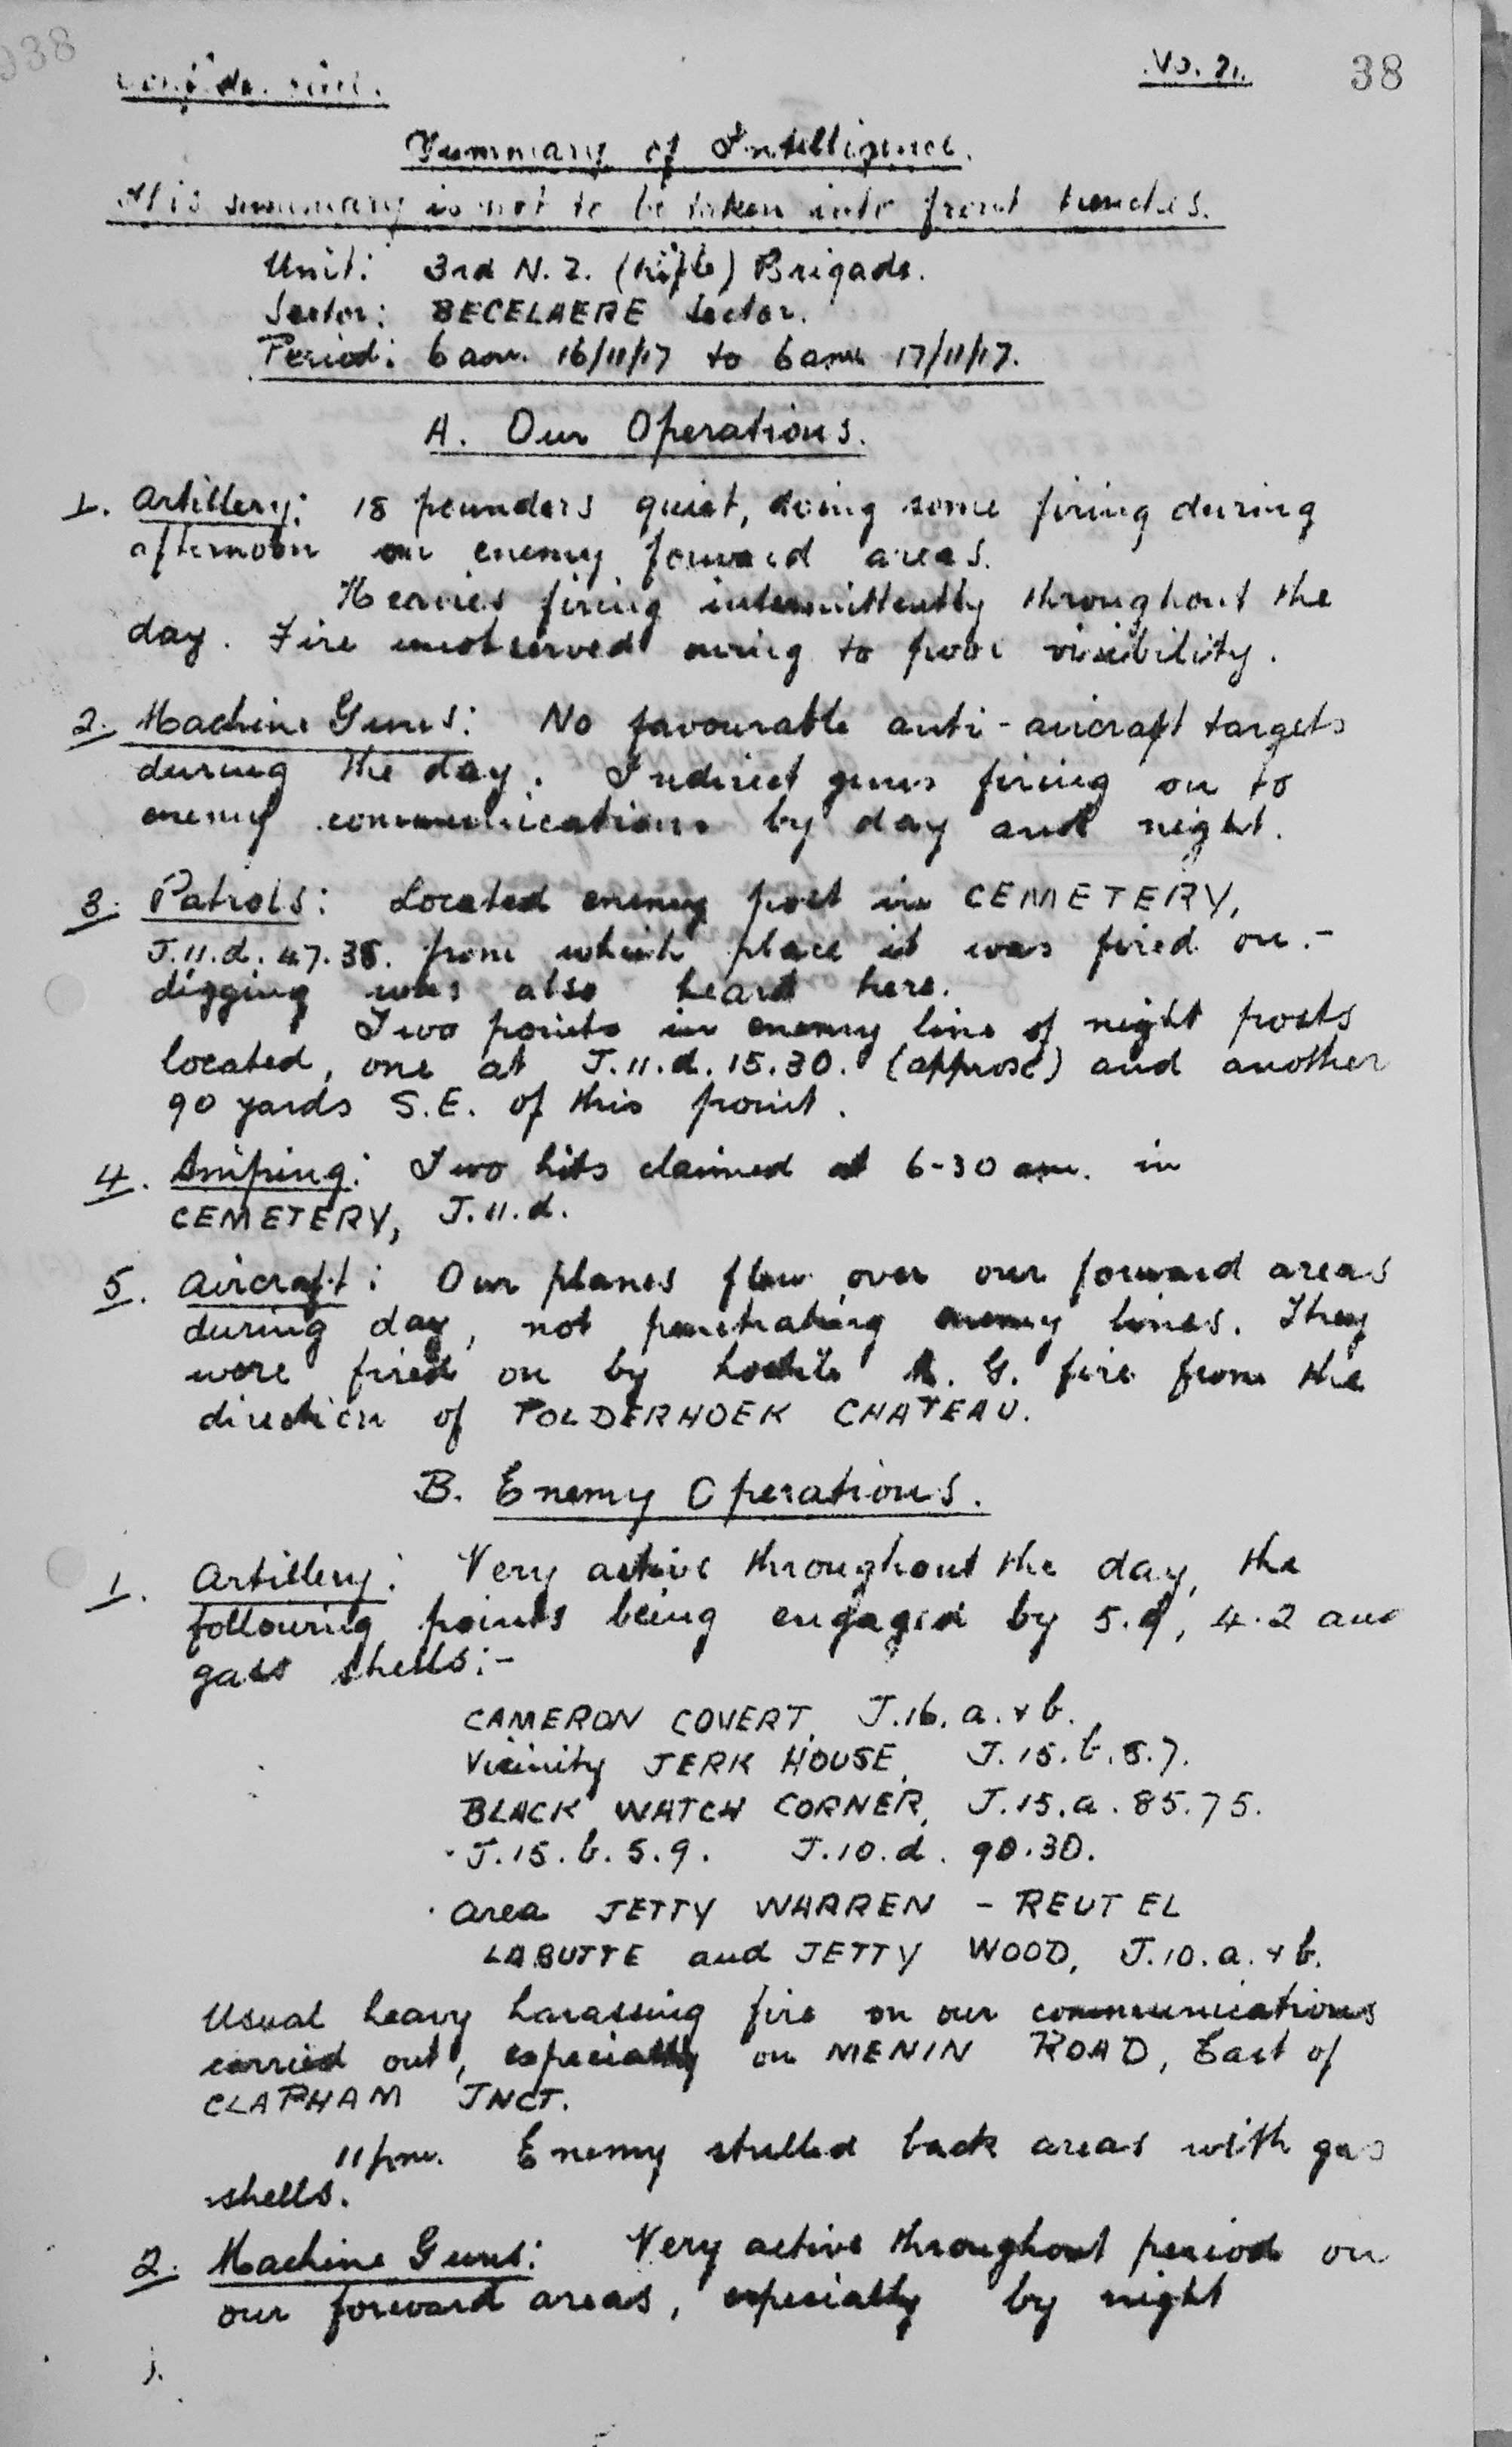 38
Confidential.
No. 21.
38
Summary of Intelligence.
This summary is not to be taken into front trenches.
Unit: 3rd N.Z. (Rifle) Brigade.
Sector: BECELAERE Sector.
Period: 6 am. 16/11/17 to 6 am 17/11/17.
A. Our Operations.
1. Artillery: 18 pounders quiet, doing some firing during
afternoon on enemy forward areas.
Heavies firing intermittently throughout the
day. Fire unobserved owing to poor visibility.
2. Machine Guns: No favourable anti-aircraft targets
during the day. Indirect guns firing on to
enemy communications by day and night.
3. Patrols: Located enemy post in CEMETERY,
J.11.d.47.38. from which place it was fired on.-
digging was also heard here.
Two points in enemy line of night posts
located, one at J.11.d.15.30. (approx) and another
90 yards S.E. of this point.
4. Sniping: Two hits claimed at 6-30 am. in
CEMETERY, J.11.d.
5. Aircraft: Our planes flew over our forward areas
during day, not penetrating enemy lines. They
were fired on by hostile M.G. fire from the
direction of POLDERHOEK CHATEAU.
B. Enemy Operations.
1. Artillery: Very active throughout the day, the
following points being engaged by 5.9, 4.2 and
gass shells:-
CAMERON COVERT, J.16.a.+b.
Vicinity JERK HOUSE, J.15.b.5.7.
BLACK WATCH CORNER, J.15.a.85.75.
J.15.b.5.9. J.10.d.90.30.
Area JETTY WARREN - REUTEL
LABUTTE and JETTY WOOD, J.10.a.+b.
Usual heavy harassing fire on our communications
carried out, especially on MENIN ROAD, East of
CLAPHAM JNCT.
11 pm. Enemy shelled back areas with gas
shells.
2. Machine Guns: Very active throughout period on
our forward areas, especially by night